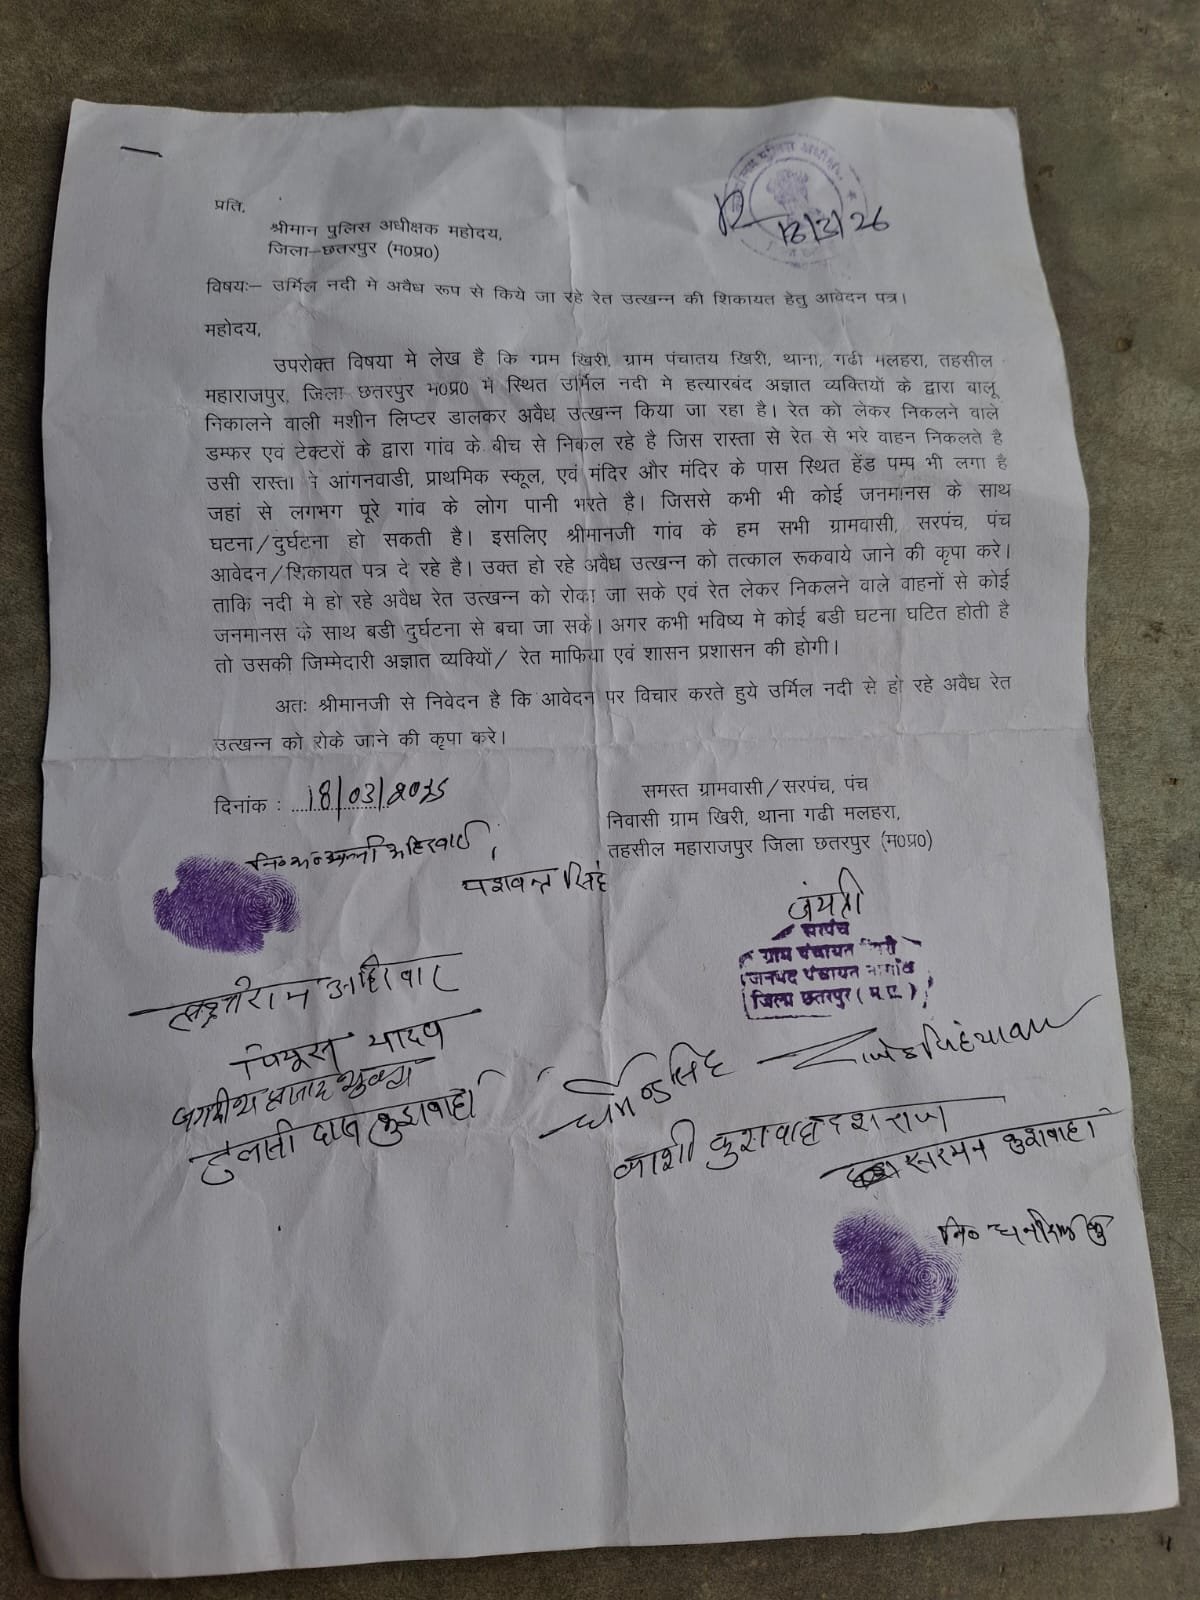 प्रति,
श्रीमान पुलिस अधीक्षक महोदय,
जिला–छतरपुर (म0प्र0)
18/3/26
विषयः– उर्मिल नदी मे अवैध रूप से किये जा रहे रेत उत्खन्न की शिकायत हेतु आवेदन पत्र।
महोदय,
उपरोक्त विषया मे लेख है कि गाम खिरी, ग्राम पंचातय खिरी, थाना, गढी मलहरा, तहसील
महाराजपुर, जिला छतरपुर म0प्र0 मे स्थित उर्मिल नदी मे हत्यारबंद अज्ञात व्यक्तियों के द्वारा बालू
निकालने वाली मशीन लिप्टर डालकर अवैध उत्खन्न किया जा रहा है। रेत को लेकर निकलने वाले
डम्फर एवं टेक्टरों के द्वारा गांव के बीच से निकल रहे है जिस रास्ता से रेत से भरे वाहन निकलते है
उसी रास्ता ने आंगनवाडी, प्राथमिक स्कूल, एवं मंदिर और मंदिर के पास स्थित हेंड पम्प भी लगा है
जहां से लगभग पूरे गांव के लोग पानी भरते है। जिससे कभी भी कोई जनमानस के साथ
घटना/दुर्घटना हो सकती है। इसलिए श्रीमानजी गांव के हम सभी ग्रामवासी, सरपंच, पंच
आवेदन/शिकायत पत्र दे रहे है। उक्त हो रहे अवैध उत्खन्न को तत्काल रूकवाये जाने की कृपा करे।
ताकि नदी मे हो रहे अवैध रेत उत्खन्न को रोका जा सके एवं रेत लेकर निकलने वाले वाहनों से कोई
जनमानस के साथ बडी दुर्घटना से बचा जा सके। अगर कभी भविष्य मे कोई बडी घटना घटित होती है
तो उसकी जिम्मेदारी अज्ञात व्यक्यिों/ रेत माफिया एवं शासन प्रशासन की होगी।
अतः श्रीमानजी से निवेदन है कि आवेदन पर विचार करते हुये उर्मिल नदी से हो रहे अवैध रेत
उत्खन्न को रोके जाने की कृपा करे।
दिनांक : 18/03/
समस्त ग्रामवासी/सरपंच, पंच
निवासी ग्राम खिरी, थाना गढी मलहरा,
तहसील महाराजपुर जिला छतरपुर (म0प्र0)
यशवन्त सिंह
जयंत्री
सरपंच
ग्राम पंचायत
जनपद पंचायत नौगांव
जिला छतरपुर (म.प्र.)
अहिरवार
यादव
धर्मेन्द्र सिंह
काशी कुशवाहा देशराज
कुशवाहा
सरमन कुशवाहा